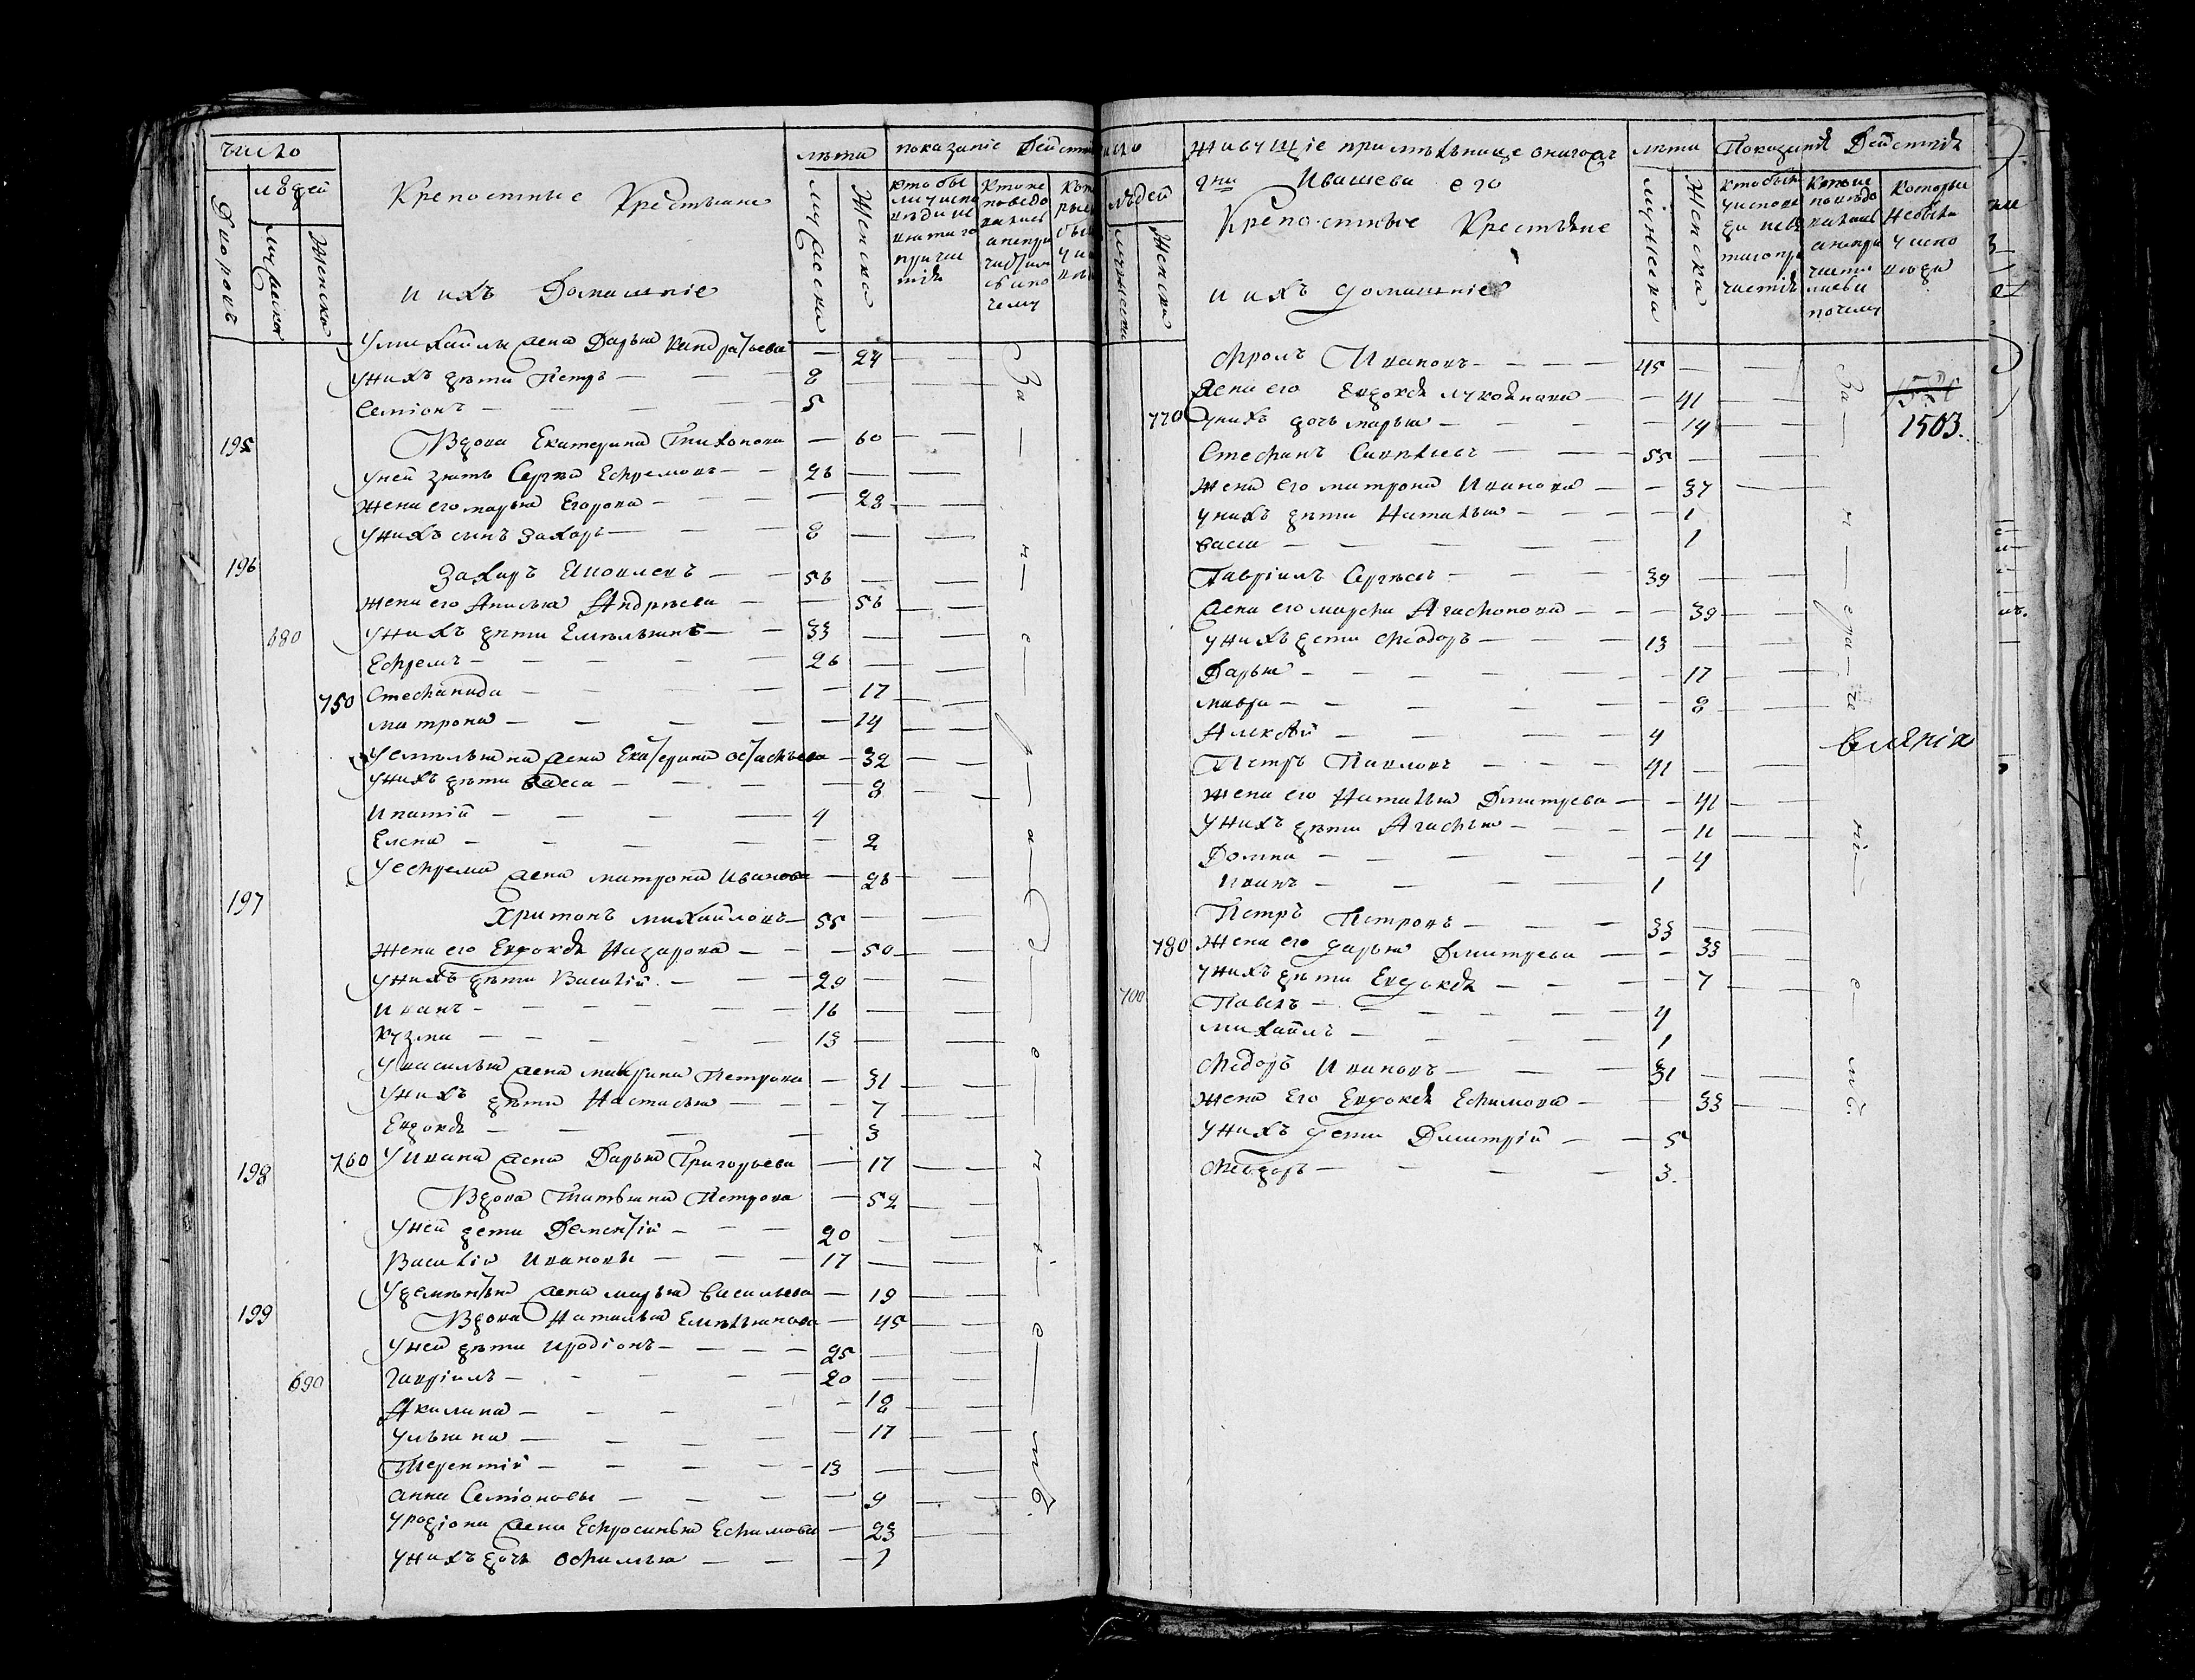 число
людей
Дворовъ
мужеска
Женска
Крепостные Крестьяне
и ихъ Домашніе
лѣта
мужеска
Женска
показаніе Действ
у михайлы жена Дарья Кандратьева — 24
у нихъ дѣти Петръ — 8
Семіонъ — 5
195 Вдова Екатерина Тихонова — 60
у ней зять Сергѣй Ефремовъ — 26
жена его марья Егорова — 28
у нихъ сынъ Захаръ — 8
196 Захаръ Яковлевъ — 56
жена его Анисья Андрѣева — 56
680 у нихъ дѣти Емельянъ — 33
Ефремъ — 26
750 Стефанида — 17
матрона — 14
у емельяна жена Екатерина Остафьева — 32
у нихъ дѣти васса — 8
Ипатій — 4
Елена — 2
у ефрема жена матрона Иванова — 26
197 Харитонъ михайловъ — 55
жена его Евдокія Назарова — 50
у нихъ дѣти Василій — 29
Иванъ — 16
Кузма — 13
у василья жена макрина Петрова — 31
у нихъ дѣти Настасья — 7
Евдокія — 3
760 у Ивана жена Дарья Григорьева — 17
198 Вдова Татьяна Петрова — 52
у ней дети Дементій — 20
Василій Ивановы — 17
у дементья жена марья васильева — 19
199 Вдова Наталья Емельянова — 45
у ней дѣти Иродіонъ — 25
690 Гавріилъ — 20
Акилина — 18
Ульяна — 17
Терентій — 13
анна Семіоновы — 9
у родіона жена Ефросинья Ефимова — 23
у нихъ дочь офимья — 1
За — н — е — р — а — д — е — н — і — е — мъ.
число
людей
мужеска
Женска
живущіе при мельнице онагожъ
гна Ивашева его
Крепостные Крестьяне
и ихъ домашніе
лѣта
мужеска
Женска
Показанія Действія
Которые
не были
у испо
веди
Фролъ Ивановъ — 45
жена его Евдокія лукоянова — 41
770 у нихъ дочь марья — 14
Стефанъ Савельевъ — 55
жена его матрона Иванова — 37
у нихъ дѣти Наталья — 1
васса — 1
Гавріилъ Сергѣевъ — 39
жена его марфа Агафонова — 39
у нихъ дети Фіодоръ — 13
Дарья — 17
мавра — 8
Алексѣй — 4
Петръ Павловъ — 41
жена его Наталья Дмитрева — 41
у нихъ дѣти Агафья — 11
Домна — 4
Иванъ — 1
Петръ Петровъ — 33
780 жена его дарья Дмитрева — 33
у нихъ дѣти Евдокія — 7
700 Павелъ — 4
михайлъ — 1
Федоръ Ивановъ — 31
жена его Евдокія Ефимова — 33
у нихъ дети Дмитрій — 5
Феодоръ — 3.
1503.